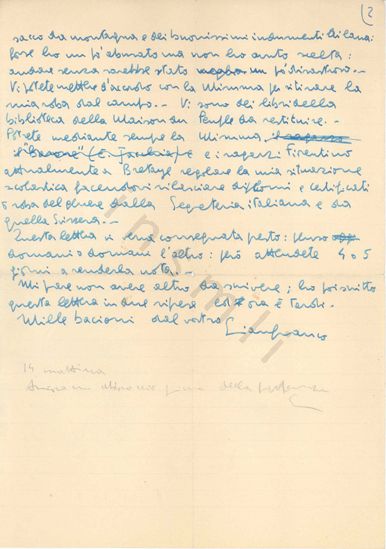 2
sacco da montagna e dei buonissimi indumenti di lana:
forse ho un po' abusato ma non ho avuto scelta:
andare senza sarebbe stato un po' disastroso. -
Vi potete mettere d'accordo con la Mimma per ritirare la
mia roba dal campo. - Vi sono dei libri della
biblioteca della Maison du Peuple da restituire. -
Potete mediante sempre la Mimma,
il "Barone" e i ragazzi Fiorentino
attualmente a Bretaye regolare la mia situazione
scolastica facendovi rilasciare diplomi e certificati
o roba del genere dalla Segreteria italiana e da
quella Svizzera. -
Questa lettera vi sarà consegnata presto: penso
domani o domani l'altro: però attendete 4 o 5
giorni a renderla nota. -
Mi pare non avere altro da scrivere; ho poi scritto
questa lettera in due riprese ed ora è tardi.
Mille bacioni dal vostro
Gianfranco
insmli
14 mattina
della partenza